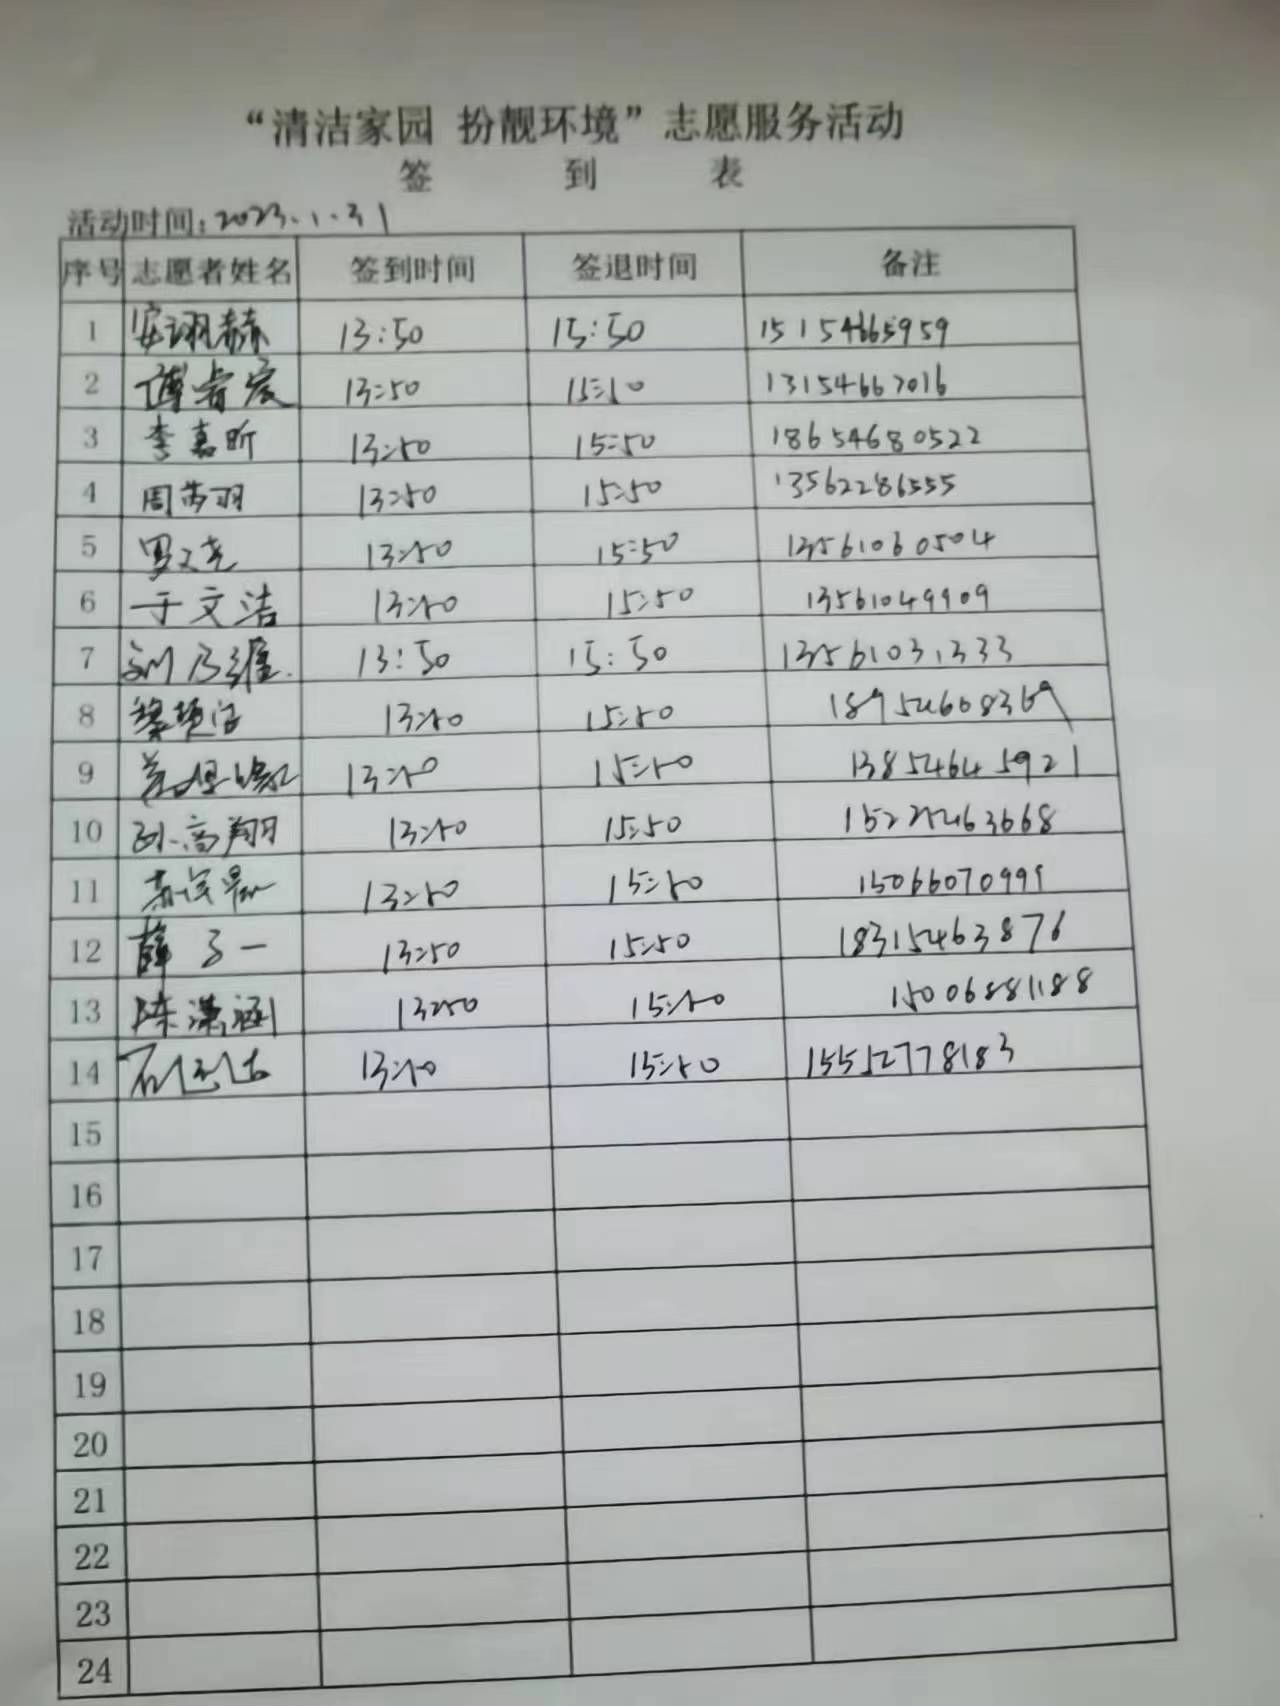 “清洁家园 扮靓环境”志愿服务活动
签 到 表
活动时间:2023.1.31
序号 志愿者姓名 签到时间 签退时间 备注
1 安翊赫 13:50 15:50 15154665959
2 13:50 15:50 13154667016
3 李嘉昕 13:50 15:50 18654680522
4 周芮羽 13:50 15:50 13562286555
5 13:50 15:50 13561060504
6 于文洁 13:50 15:50 13561049909
7 刘乃 13:50 15:50 13561031333
8 13:50 15:50 18954668369
9 13:50 15:50 13854645921
10 孙高翔 13:50 15:50 15224463668
11 13:50 15:50 15066070999
12 薛子一 13:50 15:50 18315463876
13 陈潇涵 13:50 15:50 15006881188
14 13:50 15:50 15552778183
15
16
17
18
19
20
21
22
23
24